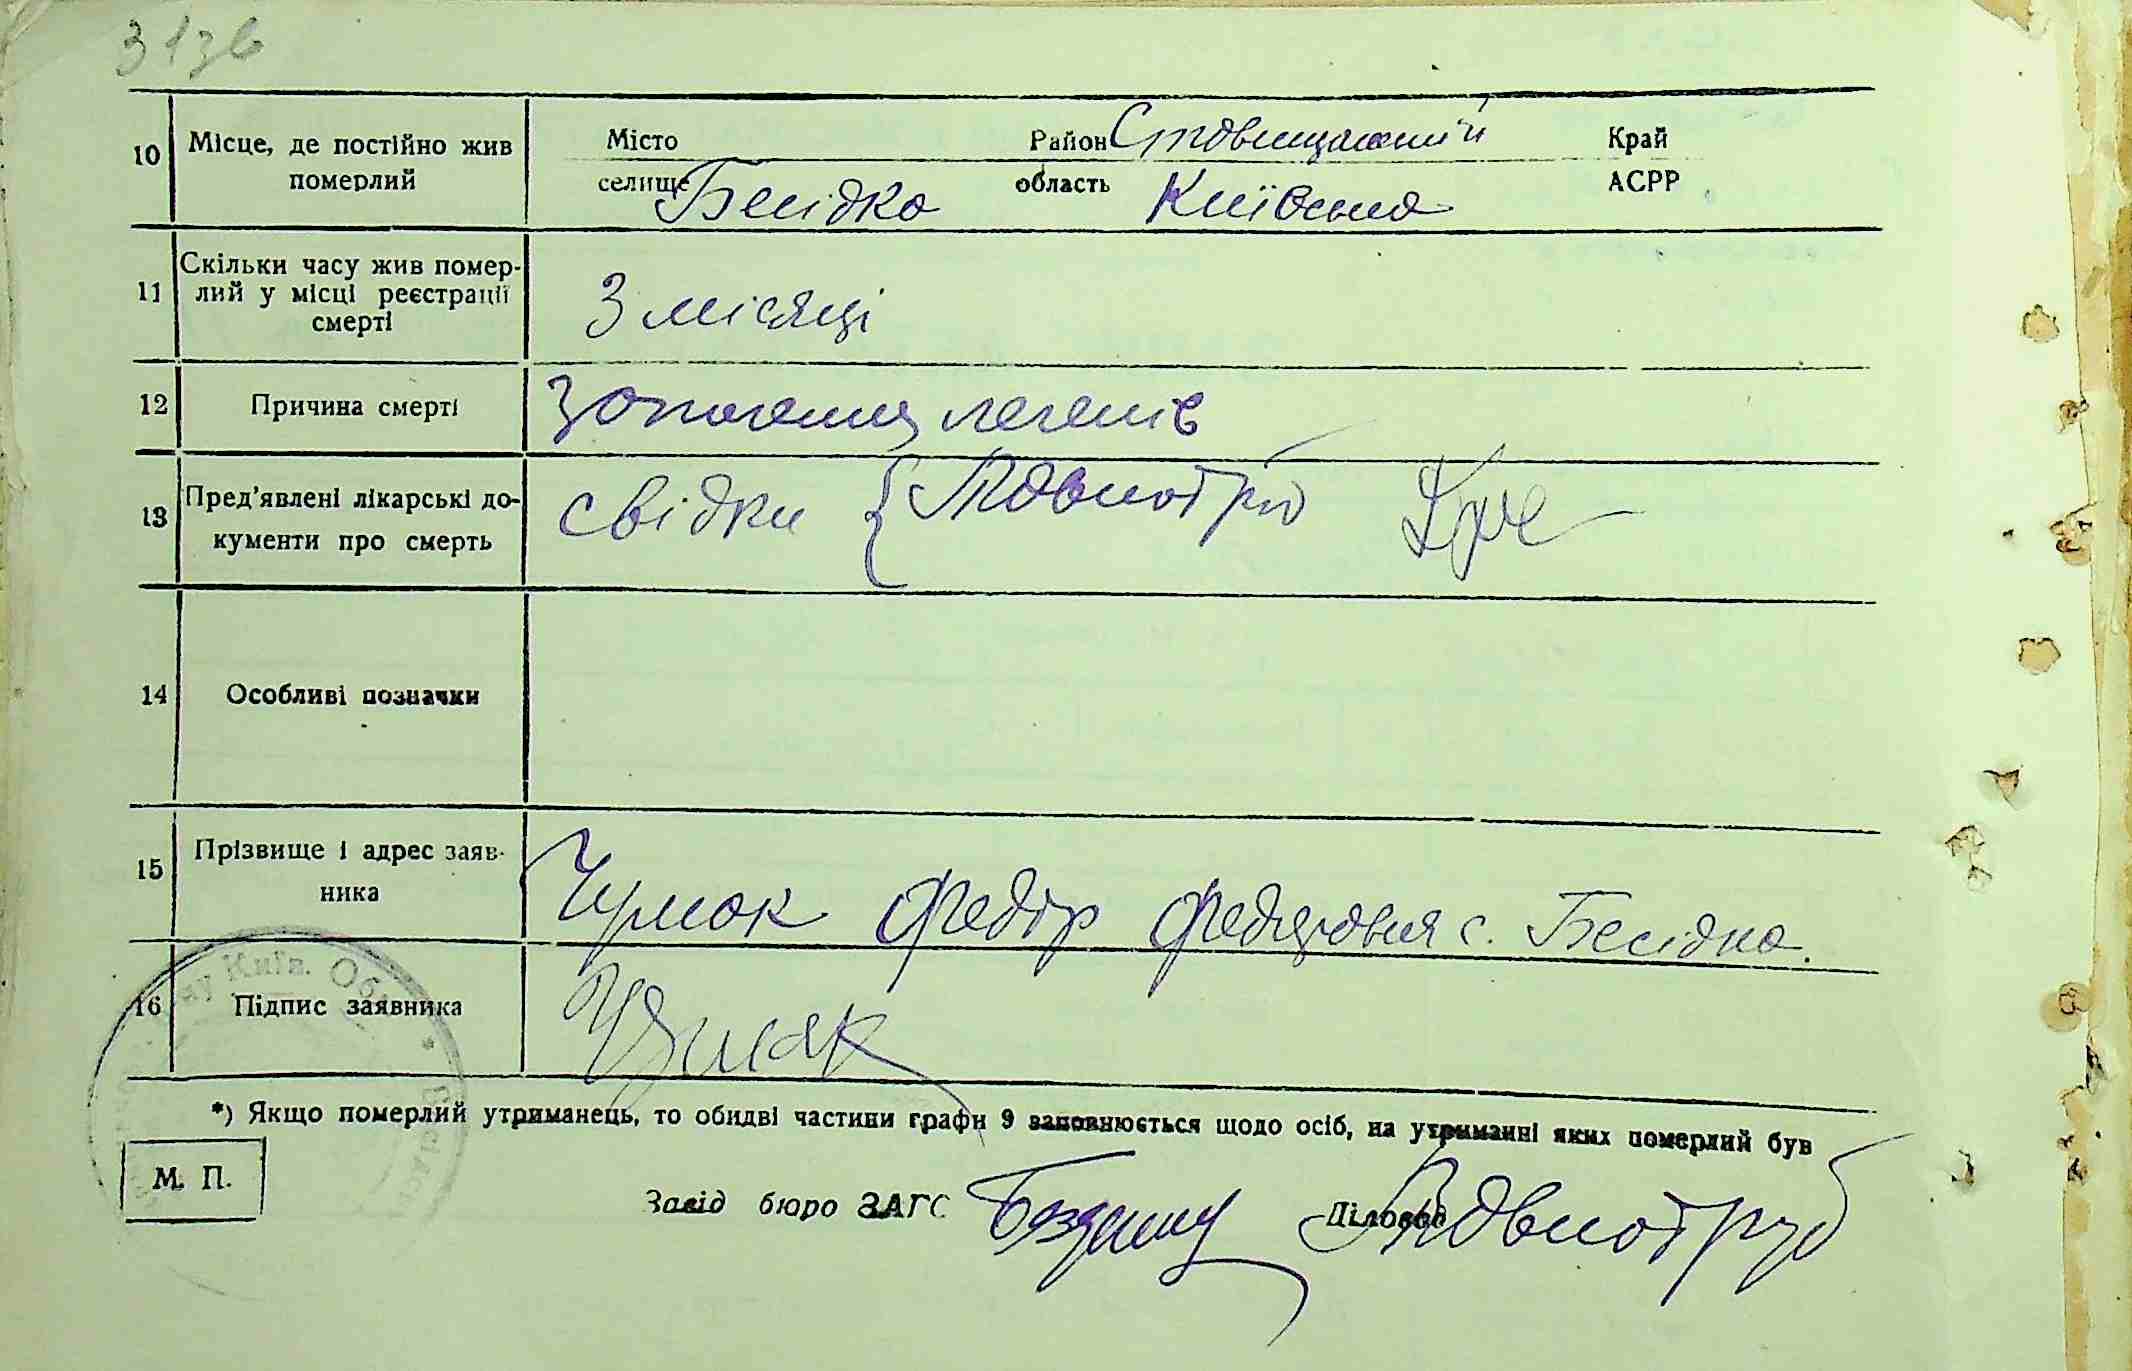 313в
10 Місце, де постійно жив померлий Місто Район Ставищанський Край
селище Бесідка область Київська АСРР
11 Скільки часу жив помер-
лий у місці реєстрації
смерті 3 місяці
12 Причина смерті Запалення легенів
13 Пред'явлені лікарські до-
кументи про смерть свідки {
14 Особливі позначки
15 Прізвище і адрес заяв-
ника Чумак Федір с. Бесідка.
16 Підпис заявника Чумак
*) Якщо померлий утриманець, то обидві частини графи 9 заповнюється щодо осіб, на утриманні яких померлий був
М. П.
Завід бюро ЗАГС Діловод